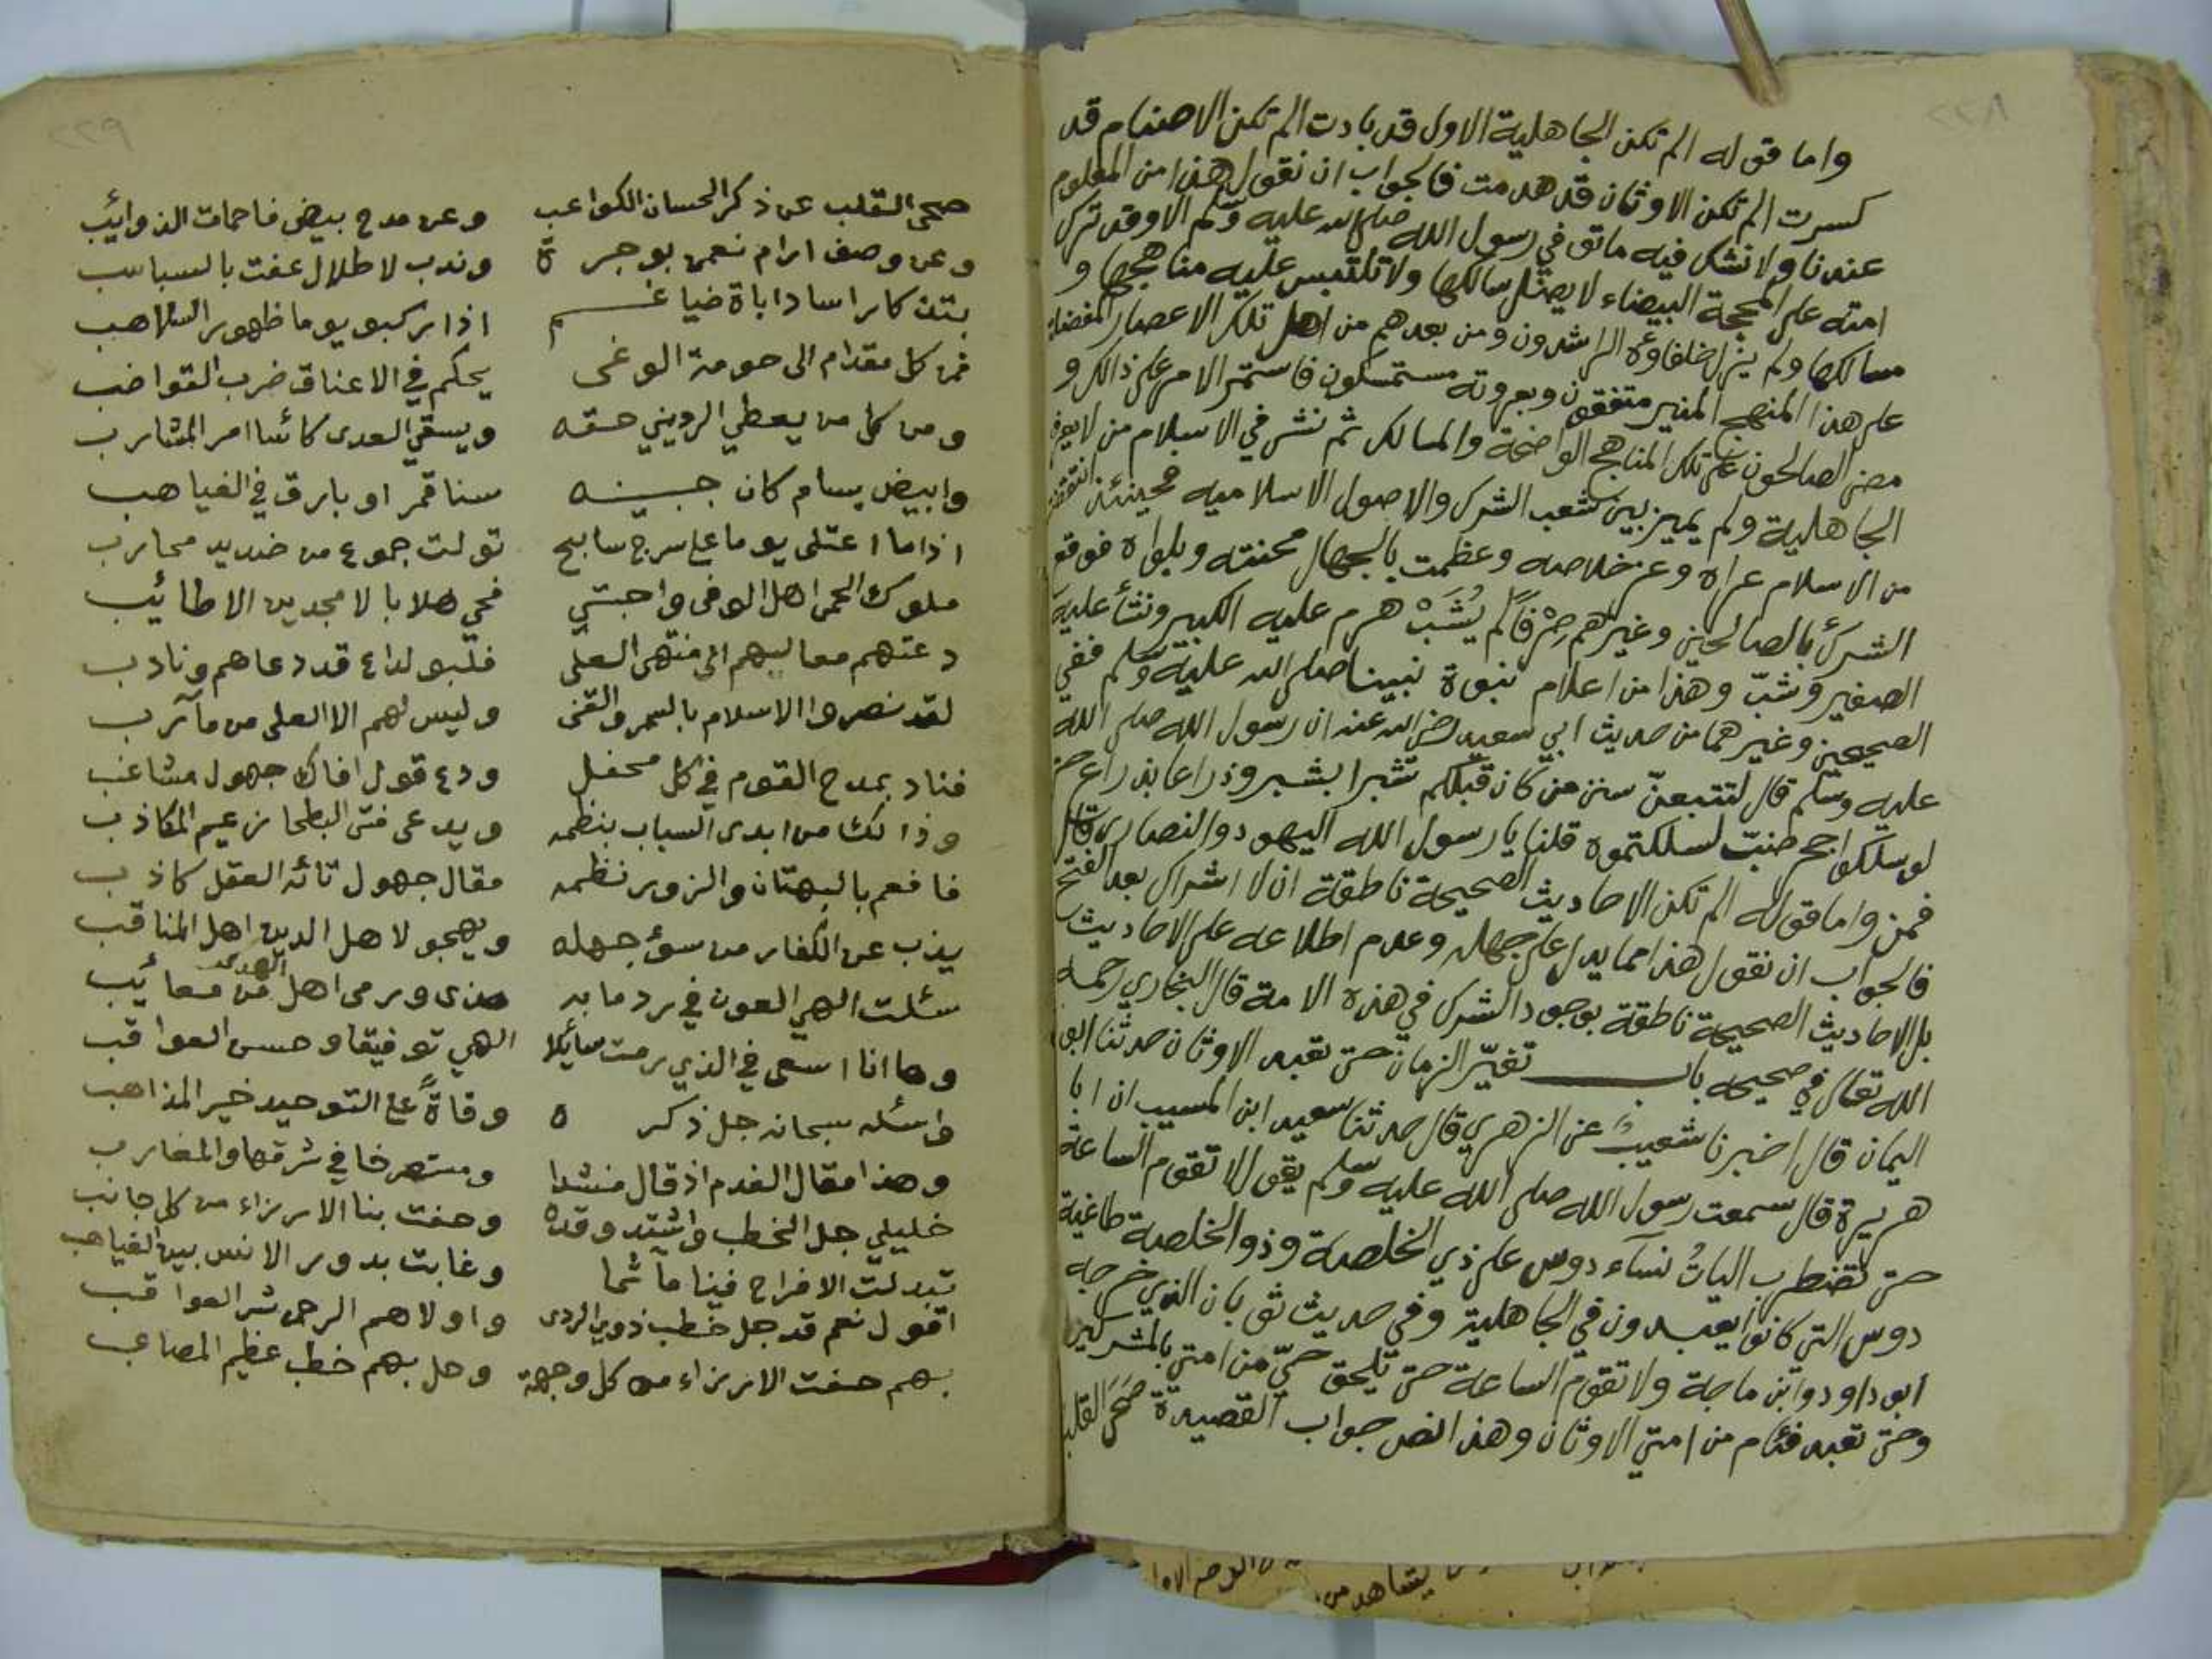 ٢٢٨
واما قوله الم تكن الجاهلية الاول قد بادت الم تكن الاصنام قد
كسرت الم تكن الاوثان قد هدمت فالجواب ان نقول هذا من المعلوم
عندنا ولا نشك فيه ماتوفي رسول الله صلى الله عليه وسلم الا وقد ترك
امته على المحجة البيضاء لا يضل سالكها ولا تلتبس عليه مناهجها و
مسالكها ولم يزل خلفاؤه الراشدون ومن بعدهم من اهل تلك الاعصار المفضلة
على هذا المنهج المنير متفقون وبعروته مستمسكون فاستمر الامر على ذالك و
مضى الصالحون على تلك المناهج الواضحة والمسالك ثم نشئ في الاسلام من لا يعرف
الجاهلية ولم يميز بين شعب الشرك والاصول الاسلاميه فحينئذ انتقضت
من الاسلام عراه وعز خلاصه وعظمت بالجهال محنته وبلواه فوقع
الشرك بالصالحين وغيرهم صرفاً لم يُشَبْ هرم عليه الكبير ونشأ عليه
الصغير وشبّ وهذا من اعلام نبوة نبينا صلى الله عليه وسلم ففي
الصحيحين وغيرهما من حديث ابي سعيد رضي الله عنه ان رسول الله صلى الله
عليه وسلم قال لتتبعنّ سنن من كان قبلكم شبرا بشبر وذراعا بذراع حتى
لو سلكوا جحر ضبّ لسلكتموه قلنا يا رسول الله اليهود والنصارى قال
فمن واما قوله الم تكن الاحاديث الصحيحة ناطقة ان لا اشراك بعد الفتح
فالجواب ان نقول هذا مما يدل على جهله وعدم اطلاعه على الاحاديث
بل الاحاديث الصحيحة ناطقة بوجود الشرك في هذه الامة قال البخاري رحمه
الله تعالى في صحيحه باب تغيّر الزمان حتى تعبد الاوثان حدثنا ابو
اليمان قال اخبرنا شعيبٌ عن الزهري قال حدثنا سعيد ابن المسيب ان ابا
هريرة قال سمعت رسول الله صلى الله عليه وسلم يقول لا تقوم الساعة
حتى تضطرب الياتُ نسآء دوس على ذي الخلصة وذو الخلصة طاغية
دوس التي كانوا يعبدون في الجاهلية وفي حديث ثوبان الذي خرجه
ابو داود وابن ماجة ولا تقوم الساعة حتى تلحق حيّ من امتي بالمشركين
وحتى تعبد فئام من امتي الاوثان وهذا نص جواب القصيدة صَحَى القلب
٢٢٩
صحى القلب عن ذكر الحسان الكواعب وعن مدح بيض فاحمات الذوائب
وعن وصف ارام نعمن بوجرة وندب لاطلال عفت بالسباسب
بتذكار اساد اباة ضياغم اذا ركبو يوما ظهور السلاهب
فمن كل مقدام الى حومة الوغى يحكم في الاعناق ضرب القواضب
ومن كل من يعطي الرديني حقه ويسقي العدى كائسا امر المشارب
وابيض بسام كان جبينه سنا قمر او بارق في الغياهب
اذا ما اعتلى يوما على سرج سابح تولت جموع من ضديد محارب
ملوك الحمى اهل الوفى واحبتي فحي هلا بالامجدين الاطائب
دعتهم معاليهم الى منتهى العلى فلبو لداع قد دعاهم ونادب
لقد نصروا الاسلام بالسمر والقنى وليس لهم الا العلى من مآرب
فناد بمدح القوم في كل محفل ودع قول افاك جهول مشاغب
وذالك من ابدى السباب بنظمه ويدعى فتى البطحا زعيم المكاذب
فافعم بالبهتان والزور نظمه مقال جهول تائه العقل كاذب
يذب عن الكفار من سوء جهله ويهجو لاهل الدين اهل المناقب
سئلت الهي العون في رد ما به هذى ورمى اهل الهدى من معائب
وها انا اسعى في الذي رمت سائلا الهي توفيقا وحسن العواقب
واسئله سبحانه جل ذكره وفاةً على التوحيد خير المذاهب
وهذا مقال الفدم اذ قال منشدا ومستصرخا في شرقها والمغارب
خليلي جل الخطب واشتد وقده وحفت بنا الارزاء من كل جانب
تبدلت الافراح فينا مآتما وغابت بدور الانس بين الغياهب
اقول نعم قد جل خطب ذوي الردى واولاهم الرحمن شر العواقب
بهم حفت الارزاء من كل وجهة وحل بهم خطب عظيم المصاعب